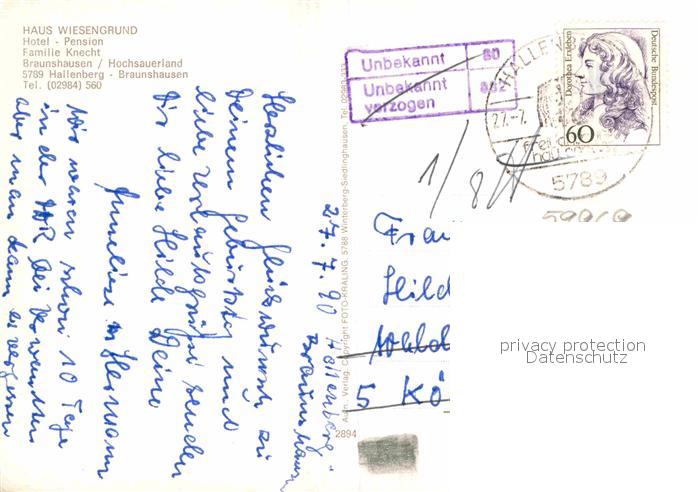 HAUS WIESENGRUND
Hotel - Pension
Familie Knecht
Braunshausen / Hochsauerland
5789 Hallenberg - Braunshausen
Tel. (02984) 560
27.7.90 Hallenberg-
Braunshausen
Herzlichen Glückwunsch zu
Deinem Geburtstag und
liebe Urlaubsgrüße senden
Dir liebe Hilde Deine
Anneliese u. Hermann
Wir waren schon 10 Tage
in der DDR bei Verwandten
aber man kann es vergessen
Autn., Verlag, Copyright FOTO-KRALING, 5788 Winterberg-Siedlinghausen, Tel.
2894
Unbekannt 80
Unbekannt
verzogen
HALLEN
27.-7.
5789
Dorothea Erxleben
Deutsche Bundespost
60
1/
Frau
Hild
5 Kö
privacy protection
Datenschutz